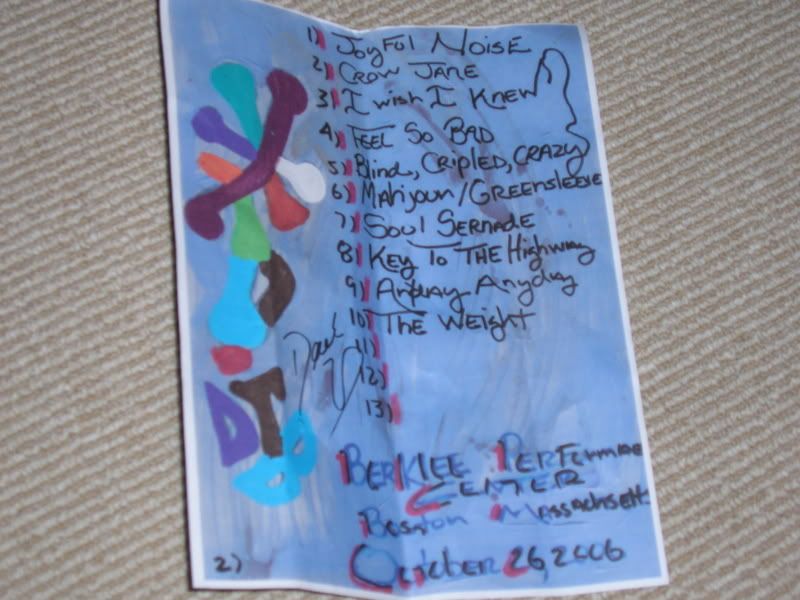 1) Joyful Noise
2) Crow Jane
3) I wish I Knew
4) Feel So Bad
5) Blind, Cripled, Crazy
6) Mahjoun/Greensleeve
7) Soul Sernade
8) Key To The Highway
9) Anyday
10) The Weight
11)
12)
13)
DTB
Berklee Performae
Center
Boston Massachsetts
October 26, 2006
2)